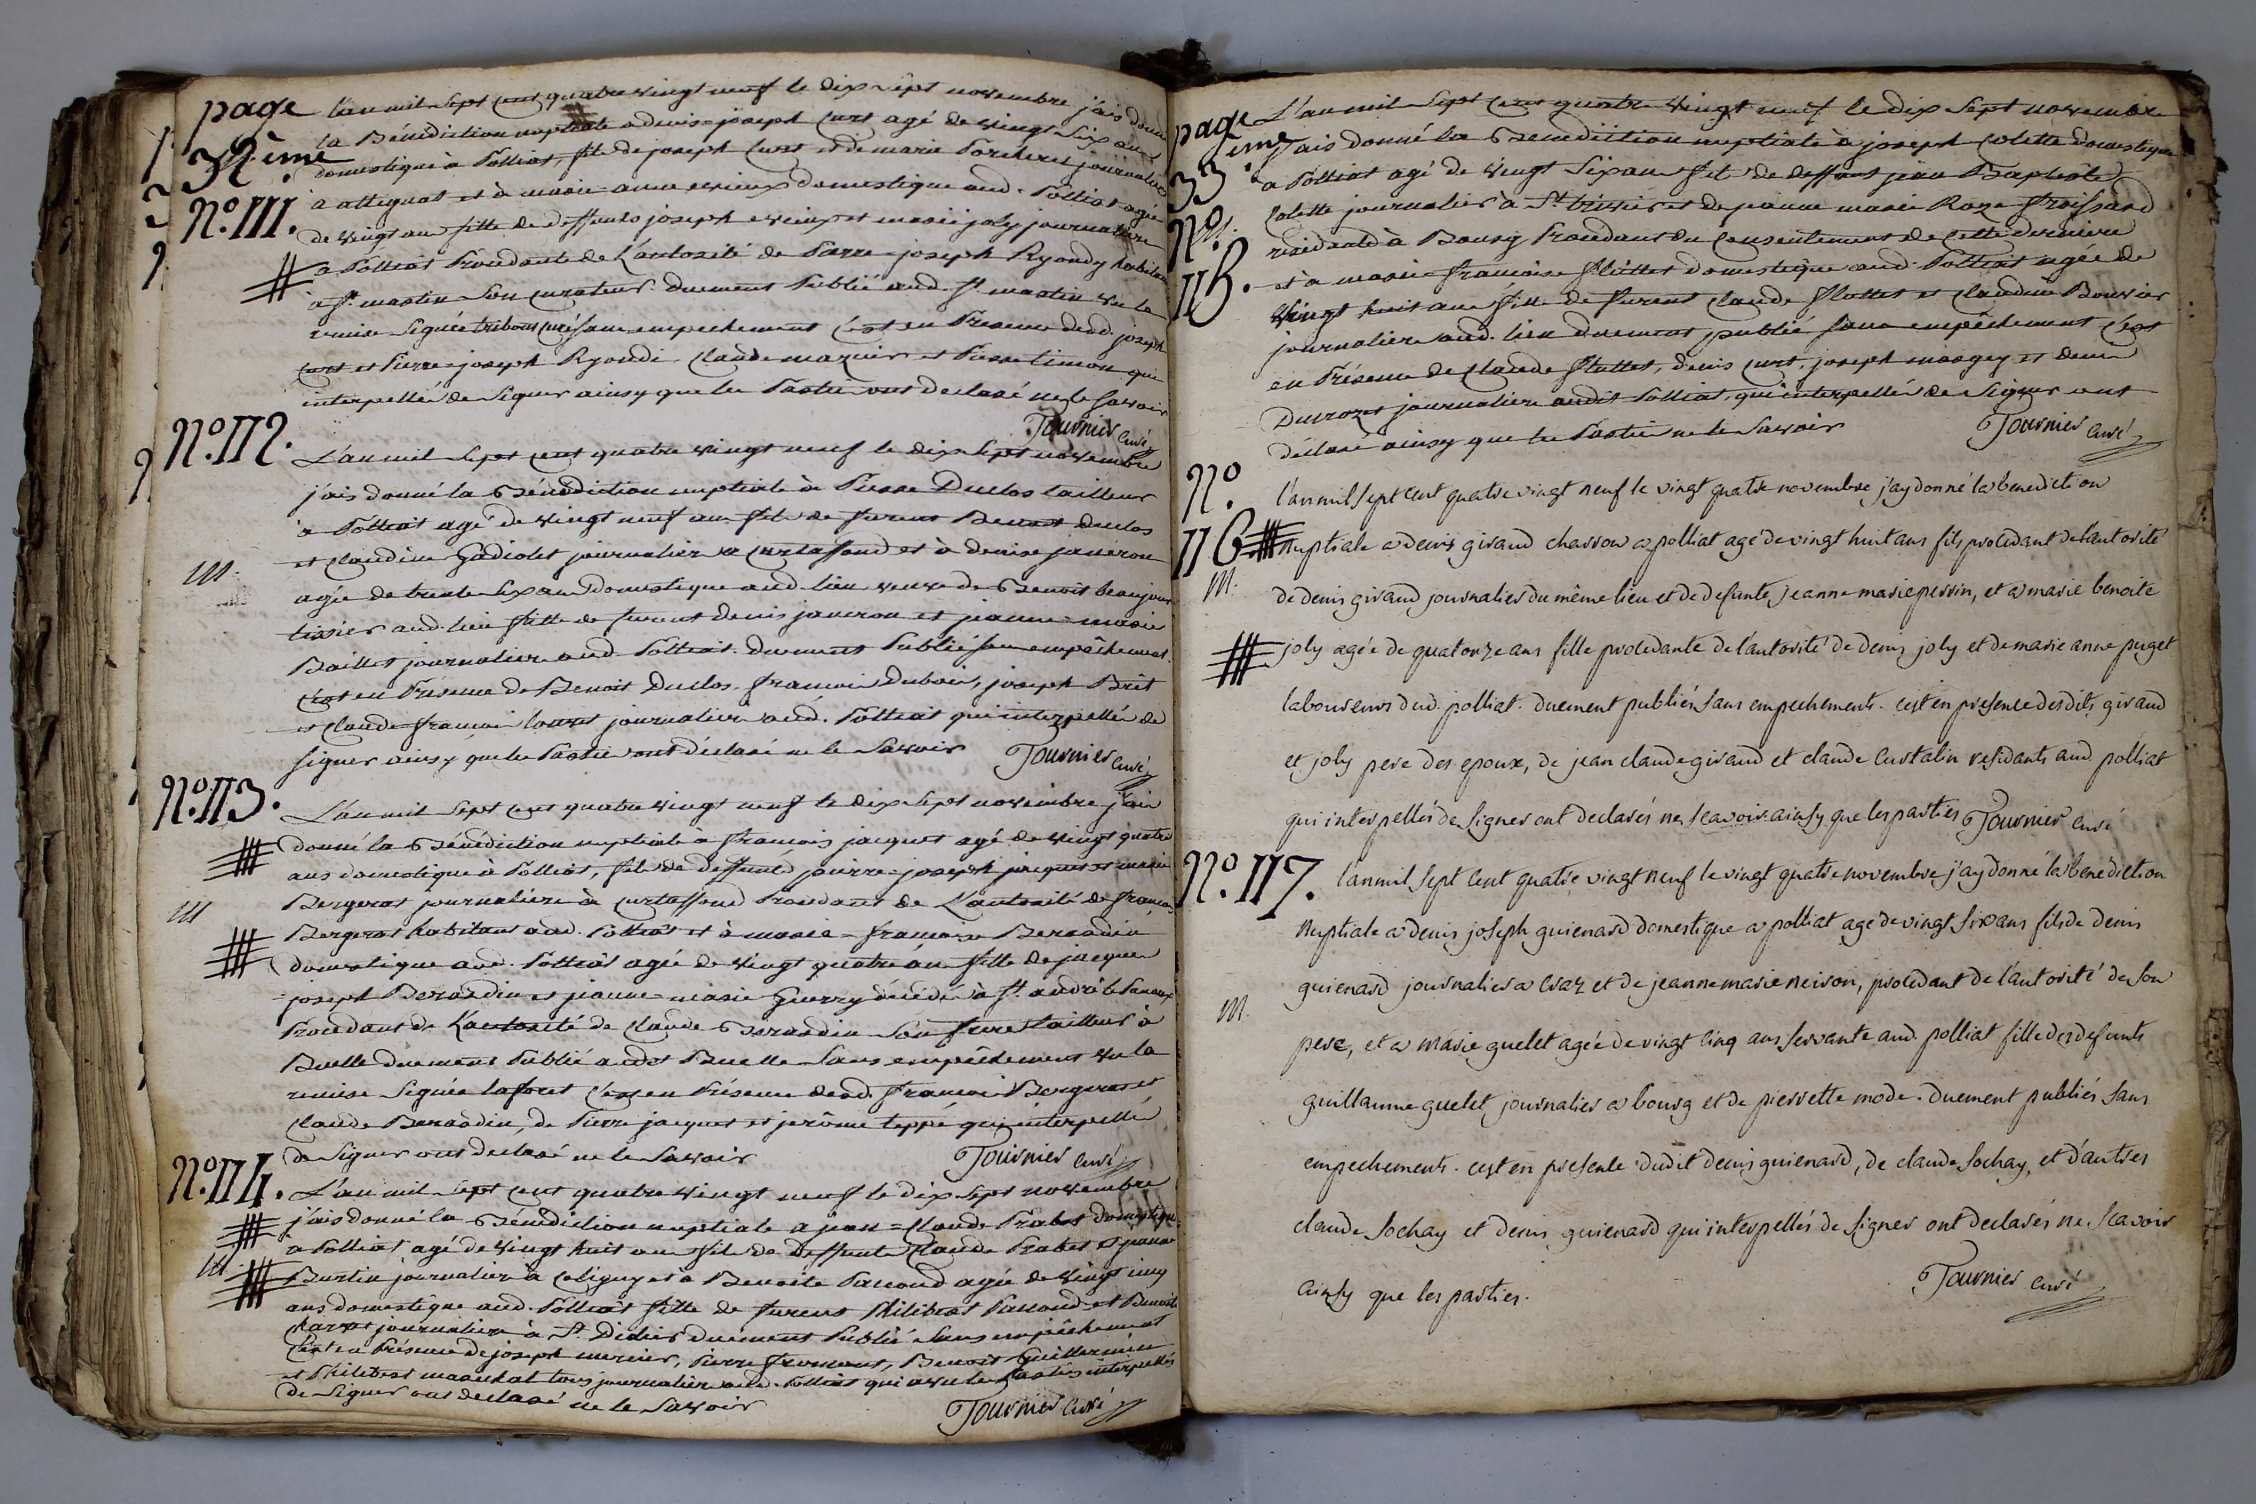 page 32ème
l'an mil sept cent quatre vingt neuf le dix sept novembre j'ais donné
la Bénédiction nuptiale a denis = joseph Curt agé de vingt six ans
domestique à Polliat, fils de joseph Curt et de marie Porcheret journaliers
N.o 111.
à attignat et à marie anne evieux domestique aud. Polliat agée
de vingt ans fille de deffunts joseph evieux et marie joly journaliers
a Polliat Procedante de L'autorité de Pierre = joseph Ryondy habitant
à St. martin son curateur. Duement Publié aud. St. martin vu la
remise signée tribout curé sans empechement C'est en Présence desd. joseph
Curt et Pierre = joseph Ryondi Claude mazuir et Pierre timon qui
interpellés de signer ainsy que les Parties ont déclaré ne le savoir
Tournier Curé
N.o 112.
L'an mil sept cent quatre vingt neuf le dix sept novembre
j'ais donné la Bénédiction nuptiale à Pierre Duclos tailleur
à Polliat agé de vingt neuf ans fils de furent Benoit duclos
et Claudine Gadiolet journaliers a Curtaffond et à denise janeron
m.
agée de trente six ans Domestique aud. lieu veuve de Benoit beaujour
tixier aud. lieu fille de furent denis janeron et jeanne = marie
Baillet journaliers aud. Polliat. duement Publié sans empêchement.
C'est en Présence de Benoit Duclos, francois Dubois, joseph Brêt
et Claude = francois louret journaliers aud. Polliat qui interpellés de
signer ainsy que les Parties ont déclaré ne le savoir
Tournier Curé
N.o 113.
L'an mil sept cent quatre vingt neuf le dix sept novembre j'ais
donné la Bénédiction nuptiale à francois jacquet agé de vingt quatre
ans domestique à Polliat, fils de deffunts pierre = joseph jacquet et marie
m
Bergerat journaliers à Curtaffond Procedant de L'autorité de francois
Bergerat habitant aud. Polliat et à marie = francoise Berardin
domestique aud. Polliat agée de vingt quatre ans fille de jacques
joseph Berardin et jeanne = marie Guerry décédés à St. andré le Panoux
Procedant de L'autorité de Claude Berardin son frere tailleur à
Buelle duement Publié audit Buelle sans empêchement vu la
remise signée laforet C'est en Présence desd. francois Bergerat et
Claude Berardin, de Pierre jacquet et jerôme teppé qui interpellé
de signer ont déclaré ne le savoir
Tournier Curé
N.o 114.
L'an mil sept cent quatre vingt neuf le dix sept novembre
j'ais donné la Bénédiction nuptiale a jean = Claude Prabet domestique
a Polliat agé de vingt huit ans fils de deffunts Claude Prabet et jeanne
m.
Burtin journaliers à Coligny et à Benoite Pacoud agée de vingt cinq
ans domestique aud. Polliat fille de furent Philibert Pacoud et Benoite
journaliers à St. Didier duement Publié sans empêchement
C'est en Présence de joseph mercier, Pierre froment, Benoit Guillermin
et Philibert marechal tous journaliers aud. Polliat qui avec les Parties interpellés
de signer ont déclaré ne le savoir
Tournier Curé
page 33ème
L'an mil sept cent quatre vingt neuf le dix sept novembre
j'ais donné la Bénédiction nuptiale à joseph Colette domestique
a Polliat agé de vingt six ans fils de deffunt jean Baptiste
N.o 115.
m.
Colette journalier à St. trivier et de jeanne marie Roze froissard
résidente à Bourg Procedant du consentement de cette derniere
et à marie = francoise fluttet domestique aud. Polliat agée de
vingt huit ans fille de furent Claude fluttet et Claudine Bouvier
journaliers aud. lieu duement publié sans empêchement C'est
en Présence de Claude fluttet, denis Curt, joseph margey et denis
Durozet journaliers audit Polliat, qui interpellés de signer ont
déclaré ainsy que les Parties ne le savoir
Tournier Curé
N.o 116
l'an mil sept cent quatre vingt neuf le vingt quatre novembre j'ay donné la benediction
nuptiale a denis giraud charron a polliat agé de vingt huit ans fils procedant de l'autorité
m.
de denis giraud journalier du même lieu et de defunte jeanne marie perrin, et a marie benoite
joly agée de quatorze ans fille procedante de l'autorité de denis joly et de marie anne puget
laboureurs dud. polliat. duement publiés sans empechement. c'est en presence desdits giraud
et joly pere des epoux, de jean claude giraud et claude Curtalin residants aud. polliat
qui interpellés de signer ont declarés ne scavoir ainsy que les parties
Tournier Curé
N.o 117.
l'an mil sept cent quatre vingt neuf le vingt quatre novembre j'ay donné la benediction
nuptiale a denis joseph guienard domestique a polliat agé de vingt six ans fils de denis
guienard journalier a Craz et de jeanne marie neiron, procedant de l'autorité de son
m.
pere, et a marie guelet agée de vingt cinq ans servante aud. polliat fille des defunts
guillaume guelet journalier a bourg et de pierrette mode. duement publiés sans
empechement. c'est en presence dudit denis guienard, de claude sochay, et d'autres
claude sochay et denis guienard qui interpellés de signer ont declarés ne scavoir
ainsy que les parties.
Tournier Curé